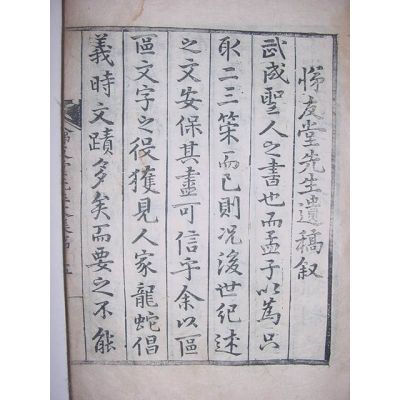 悌友堂先生遺稿叙
武成聖人之書也而孟子以為只
取二三策而已則況後世紀述
之文安保其盡可信乎余以區
區文字之役獲見人家龍蛇倡
義時文蹟多矣而要之不能